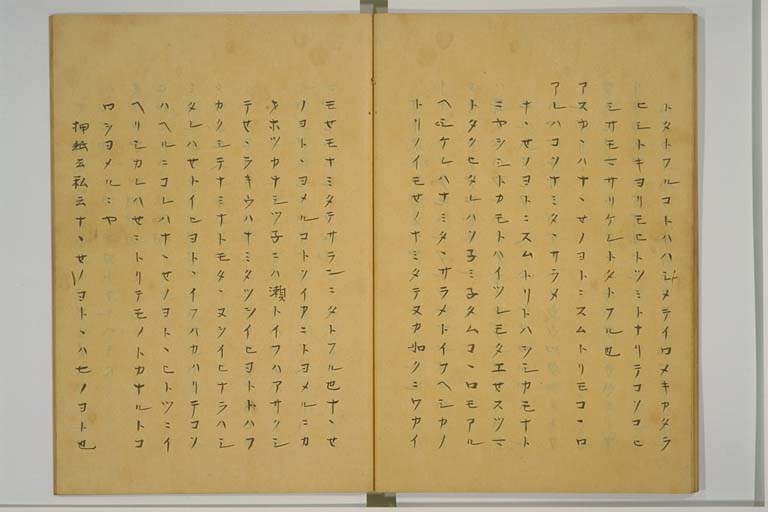 トタトフルコトハハシメテイロメキカタラ
ヒシトキヨリモヒトツミトナリテコソコヒ
シサモマサリケレトタトフル也
アスカヽハナヽセノヨトニスムトリモコヽロ
アレハコソナミタヽサラメ
ナヽセノヨトニスムトリトハシカモナト
ニヤシシトカモトハイツレモタエセスツマ
トタクセタレハツ子ミ子タムコヽロモアル
ヘシケレハナミタヽサラメトイフヘシカノ
トリノイモセノナミタテヌカ如クニワカイ
モセモナミタテサランニタトフル也ナヽセ
ノヨトヽヨメルコトソイカニトヨメルニカ
オホツカナシツ子ニハ瀬トイフハアサクシ
テセヽラキウハナミタツシイヒヨトトハフ
カクシテナミナトモタヽヌシイヒナラハシ
タレハセトイヒヨトヽイフハカハリテコソ
ハヘルニコレハナヽセノヨトヽヒトツニイ
ヘリシカレハセニトリテモノトカナルトコ
ロシヨメルニヤ
押紙云私云ナヽセノヨトヽハセノヨト也